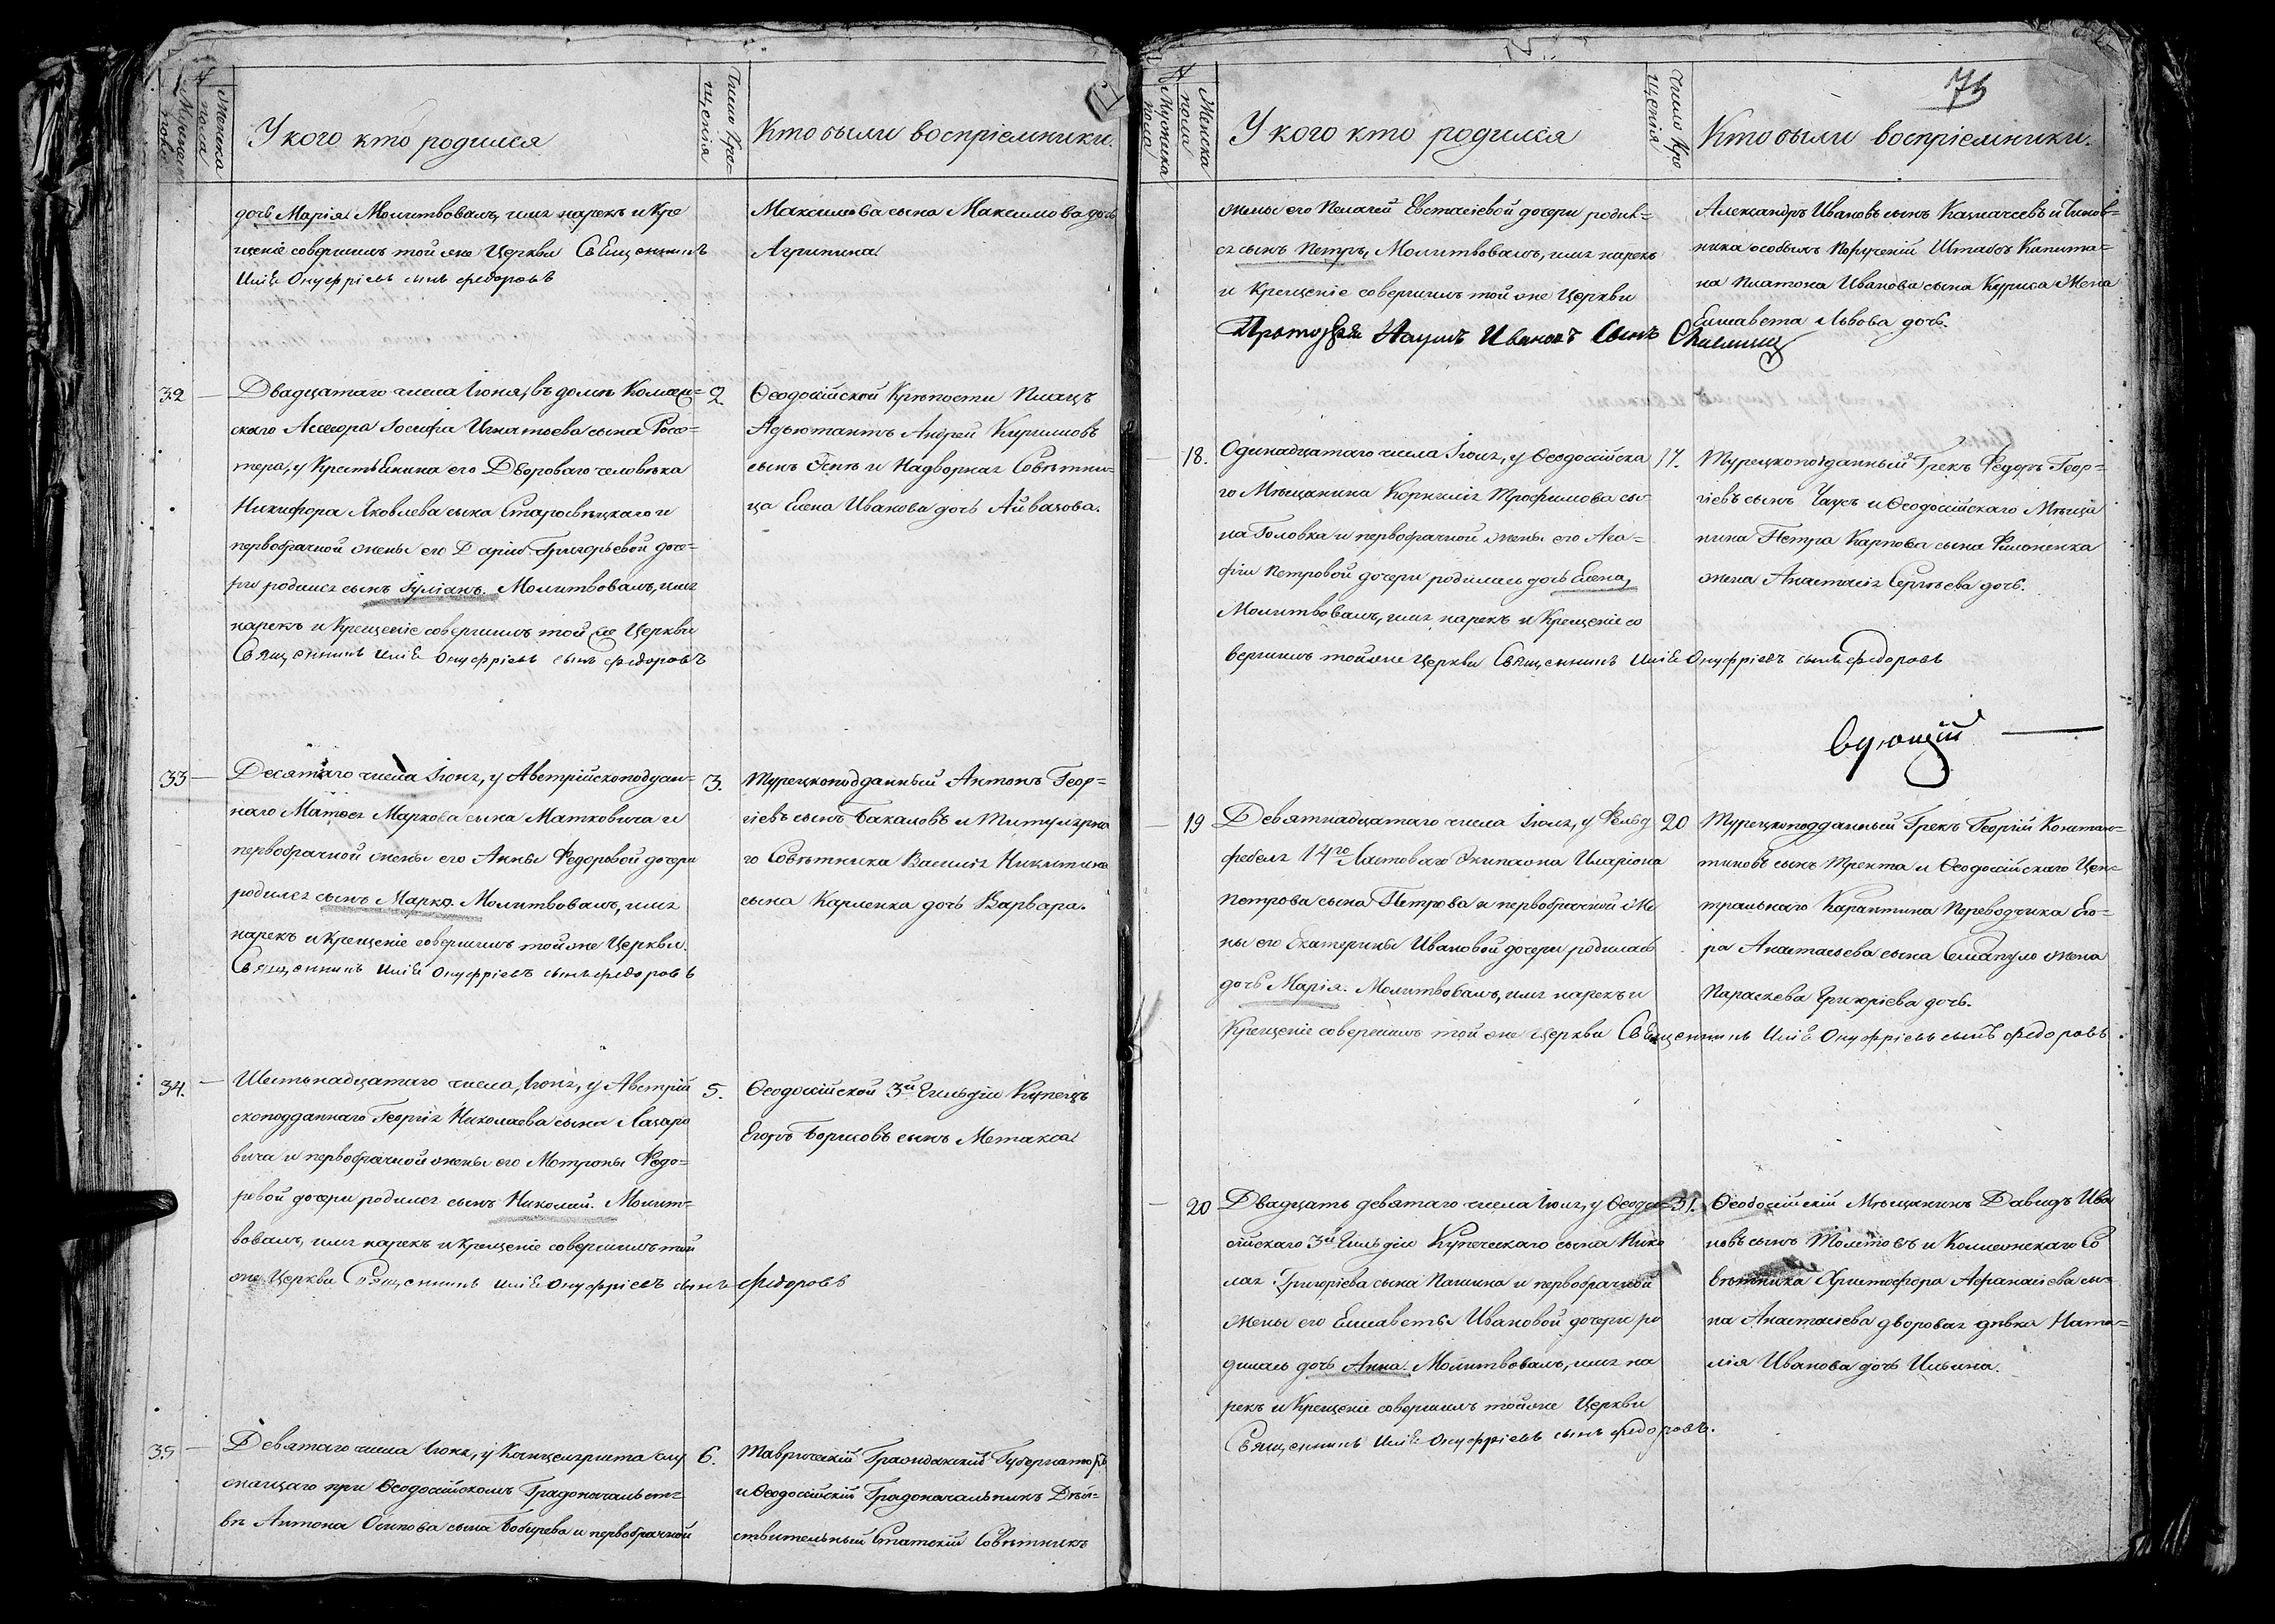 №
Мужеска пола
Женска пола
У кого кто родился
Число Крещенія
Кто были воспріемники.
дочь Марія. Молитвовалъ, имя нарекъ и Кре
щеніе совершилъ той же Церкви Священникъ
Илія Онуфріевъ сынъ Федоровъ
Максимова сына Максимова дочь
Агрипина.
32
Двадцатаго числа Іюня, въ домѣ Коллеж=
скаго Ассесора Іосифа Игнатьева сына Россо=
тера, у Крестьянина его Двороваго человѣка
Никифора Яковлева сына Старосвѣцкаго и
первобрачной жены его Даріи Григорьевой доче=
ри родился сынъ Іуліанъ. Молитвовалъ, имя
нарекъ и Крещеніе совершилъ той же Церкви
Священникъ Илія Онуфріевъ сынъ Федоровъ
2.
Ѳеодосійской Крѣпости Плацъ
Адъютантъ Андрей Кириловъ
сынъ Генъ и Надворная Совѣтни=
ца Елена Иванова дочь Айвазова.
33
Десятаго числа Іюня, у Австрійскоподдан=
наго Матвея Маркова сына Матковича и
первобрачной жены его Анны Федоровой дочери
родился сынъ Марко. Молитвовалъ, имя
нарекъ и Крещеніе совершилъ той же Церкви.
Священникъ Илія Онуфріевъ сынъ Федоровъ
3.
Турецкоподданный Антонъ Геор=
гіевъ сынъ Бакаловъ и Титулярна
го Совѣтника Василія Никитина
сына Карленка дочь Варвара.
34.
Шестьнадцатаго числа, Іюня, у Австрій
скоподданнаго Георгія Николаева сына Лазаро
вича и первобрачной жены его Мотроны Федо=
ровой дочери родился сынъ Николай. Молит=
вовалъ, имя нарекъ и Крещеніе совершилъ той
же Церкви Священникъ Илія Онуфріевъ сынъ Федоровъ
5.
Ѳеодосійской 3й Гильдіи Купецъ
Егоръ Борисовъ сынъ Метакса.
35
Девятаго числа Іюня, у Канцеляриста слу
жащаго при Ѳеодосійскомъ Градоначальст=
вѣ Антона Осипова сына Бобырева и первобрачной
6.
Таврическій Гражданскій Губернаторъ
и Ѳеодосійскій Градоначальникъ Дѣй=
ствительный Статскій Совѣтникъ
75
№
Мужеска пола
Женска пола
У кого кто родился
Число Крещенія
Кто были воспріемники.
жены его Пелагеи Евстафіевой дочери родил=
ся сынъ Петръ, Молитвовалъ, имя нарекъ
и Крещеніе совершилъ той же Церкви
Протоіерей Наумъ Ивановъ Сынъ
Александръ Ивановъ сынъ Казначеевъ и Чинов=
ника особыхъ Порученій Штабсъ Капита=
на Платона Иванова сына Курриса Жена
Елисавета Львова дочь.
18.
Одинадцатаго числа Іюля, у Ѳеодосійска
го Мѣщанина Корнилія Трофимова сы=
на Головка и первобрачной жены его Ага=
фіи Петровой дочери родилась дочь Елена,
Молитвовалъ, имя нарекъ и Крещеніе со
вершилъ той же Церкви Священникъ Илія Онуфріевъ сынъ Федоровъ
17.
Турецкоподданный Грекъ Федоръ Геор=
гіевъ сынъ Чаусъ и Ѳеодосійскаго Мѣща
нина Петра Карпова сына Филоненка
жена Анастасія Сергѣева дочь.
вующій
19
Девятнадцатаго числа Іюля, у Фельд
фебеля 14го Ластоваго Экипажа Иларіона
Петрова сына Петрова и первобрачной же
ны его Екатерины Ивановой дочери родилась
дочь Марія. Молитвовалъ, имя нарекъ и
Крещеніе совершилъ той же Церкви Священникъ Илія Онуфріевъ сынъ Федоровъ
20
Турецкоподданный Грекъ Георгій Констан=
тиновъ сынъ Трента и Ѳеодосійскаго Цен
тральнаго Карантина Переводчика Его=
ра Анастасьева сына жена
Параскева Григоріева дочь.
20
Двадцать девятаго числа Іюля, у Ѳеодо=
сійскаго 3й Гильдіи Купеческаго сына Нико
лая Григоріева сына Пашина и первобрачной
жены его Елисаветы Ивановой дочери ро
дилась дочь Анна. Молитвовалъ, имя на
рекъ и Крещеніе совершилъ той же Церкви
Священникъ Илія Онуфріевъ сынъ Федоровъ.
31.
Ѳеодосійскій Мѣщанинъ Давидъ Ива
новъ сынъ Толстовъ и Коллежскаго Со
вѣтника Христофора Афанасіева сы=
на Анастасіева дворовая дѣвка Ната=
лія Иванова дочь Ильина.